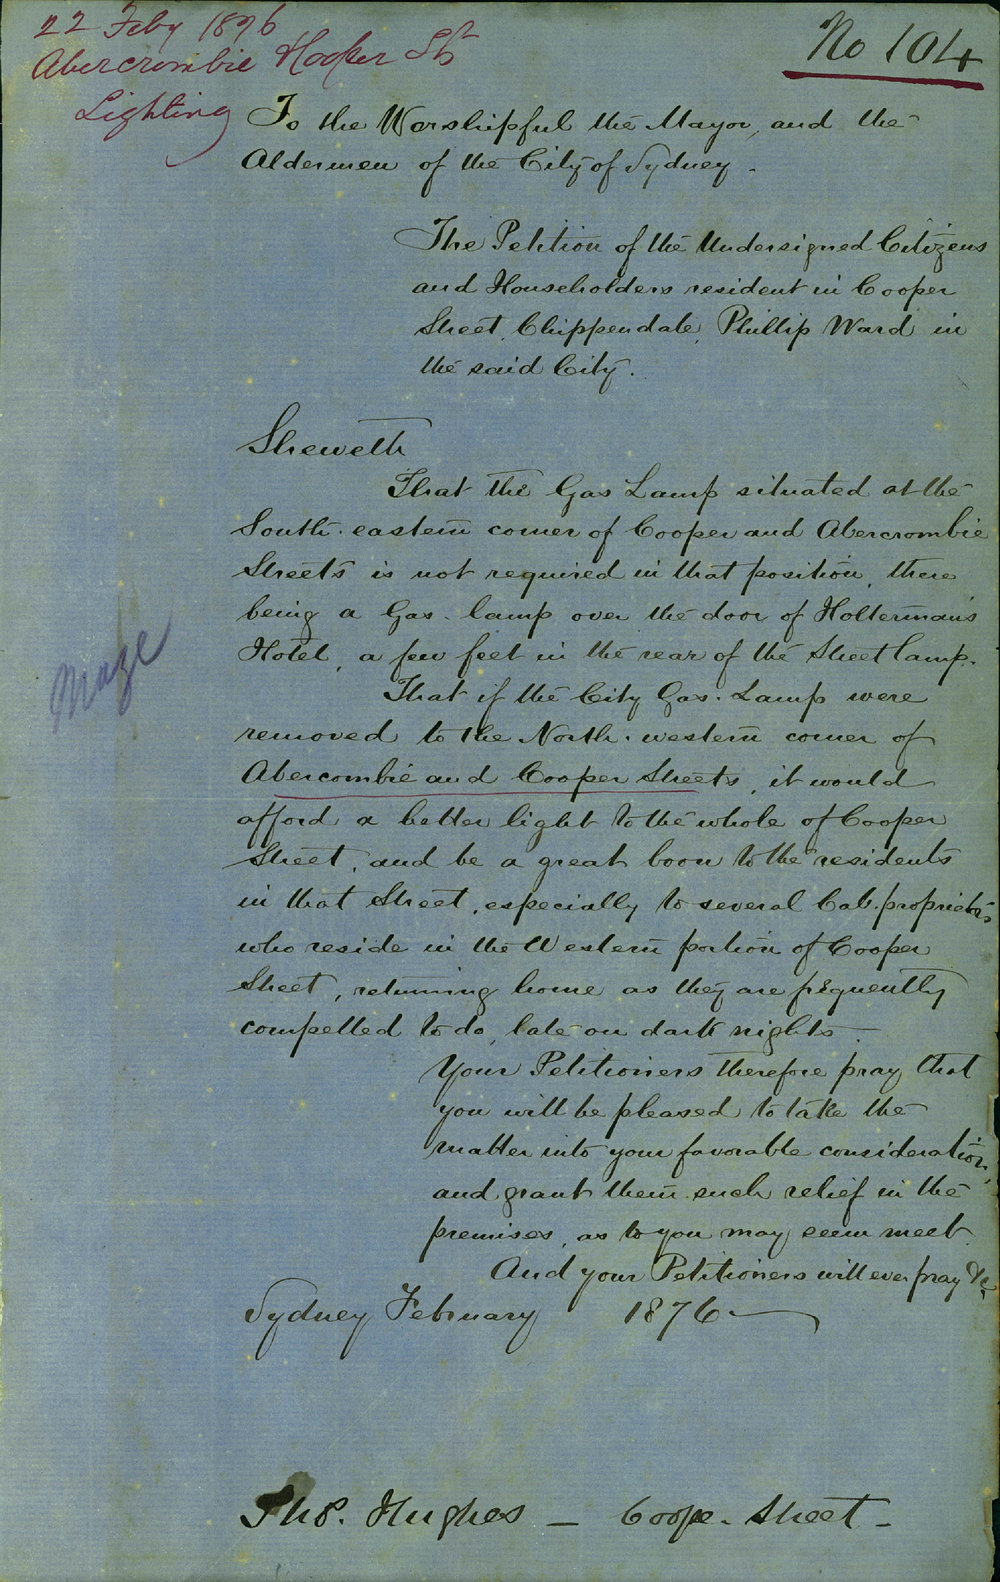 22 Feby 1876
Abercrombie & Cooper Sts
Lighting
No 104
To the Worshipful the Mayor, and the
Aldermen of the City of Sydney.
The Petition of the Undersigned Citizens
and Householders resident in Cooper
Street, Chippendale, Phillip Ward in
the said City.
Sheweth
That the Gas Lamp situated at the
South-eastern corner of Cooper and Abercrombie
Streets is not required in that position, there
being a Gas-lamp over the door of Holterman's
Hotel, a few feet in the rear of the Street lamp.
That if the City Gas-Lamp were
removed to the North-western corner of
Abercombie and Cooper Streets, it would
afford a better light to the whole of Cooper
Street, and be a great boon to the residents
in that Street, especially to several Cab-proprietors
who reside in the Western portion of Cooper
Street, returning home as they are frequently
compelled to do, late on dark nights—
Your Petitioners therefore pray that
you will be pleased to take the
matter into your favorable consideration,
and grant them such relief in the
premises, as to you may seem meet.
And your Petitioners will ever pray &c.
Sydney February 1876—
Thos. Hughes — Cooper Street —